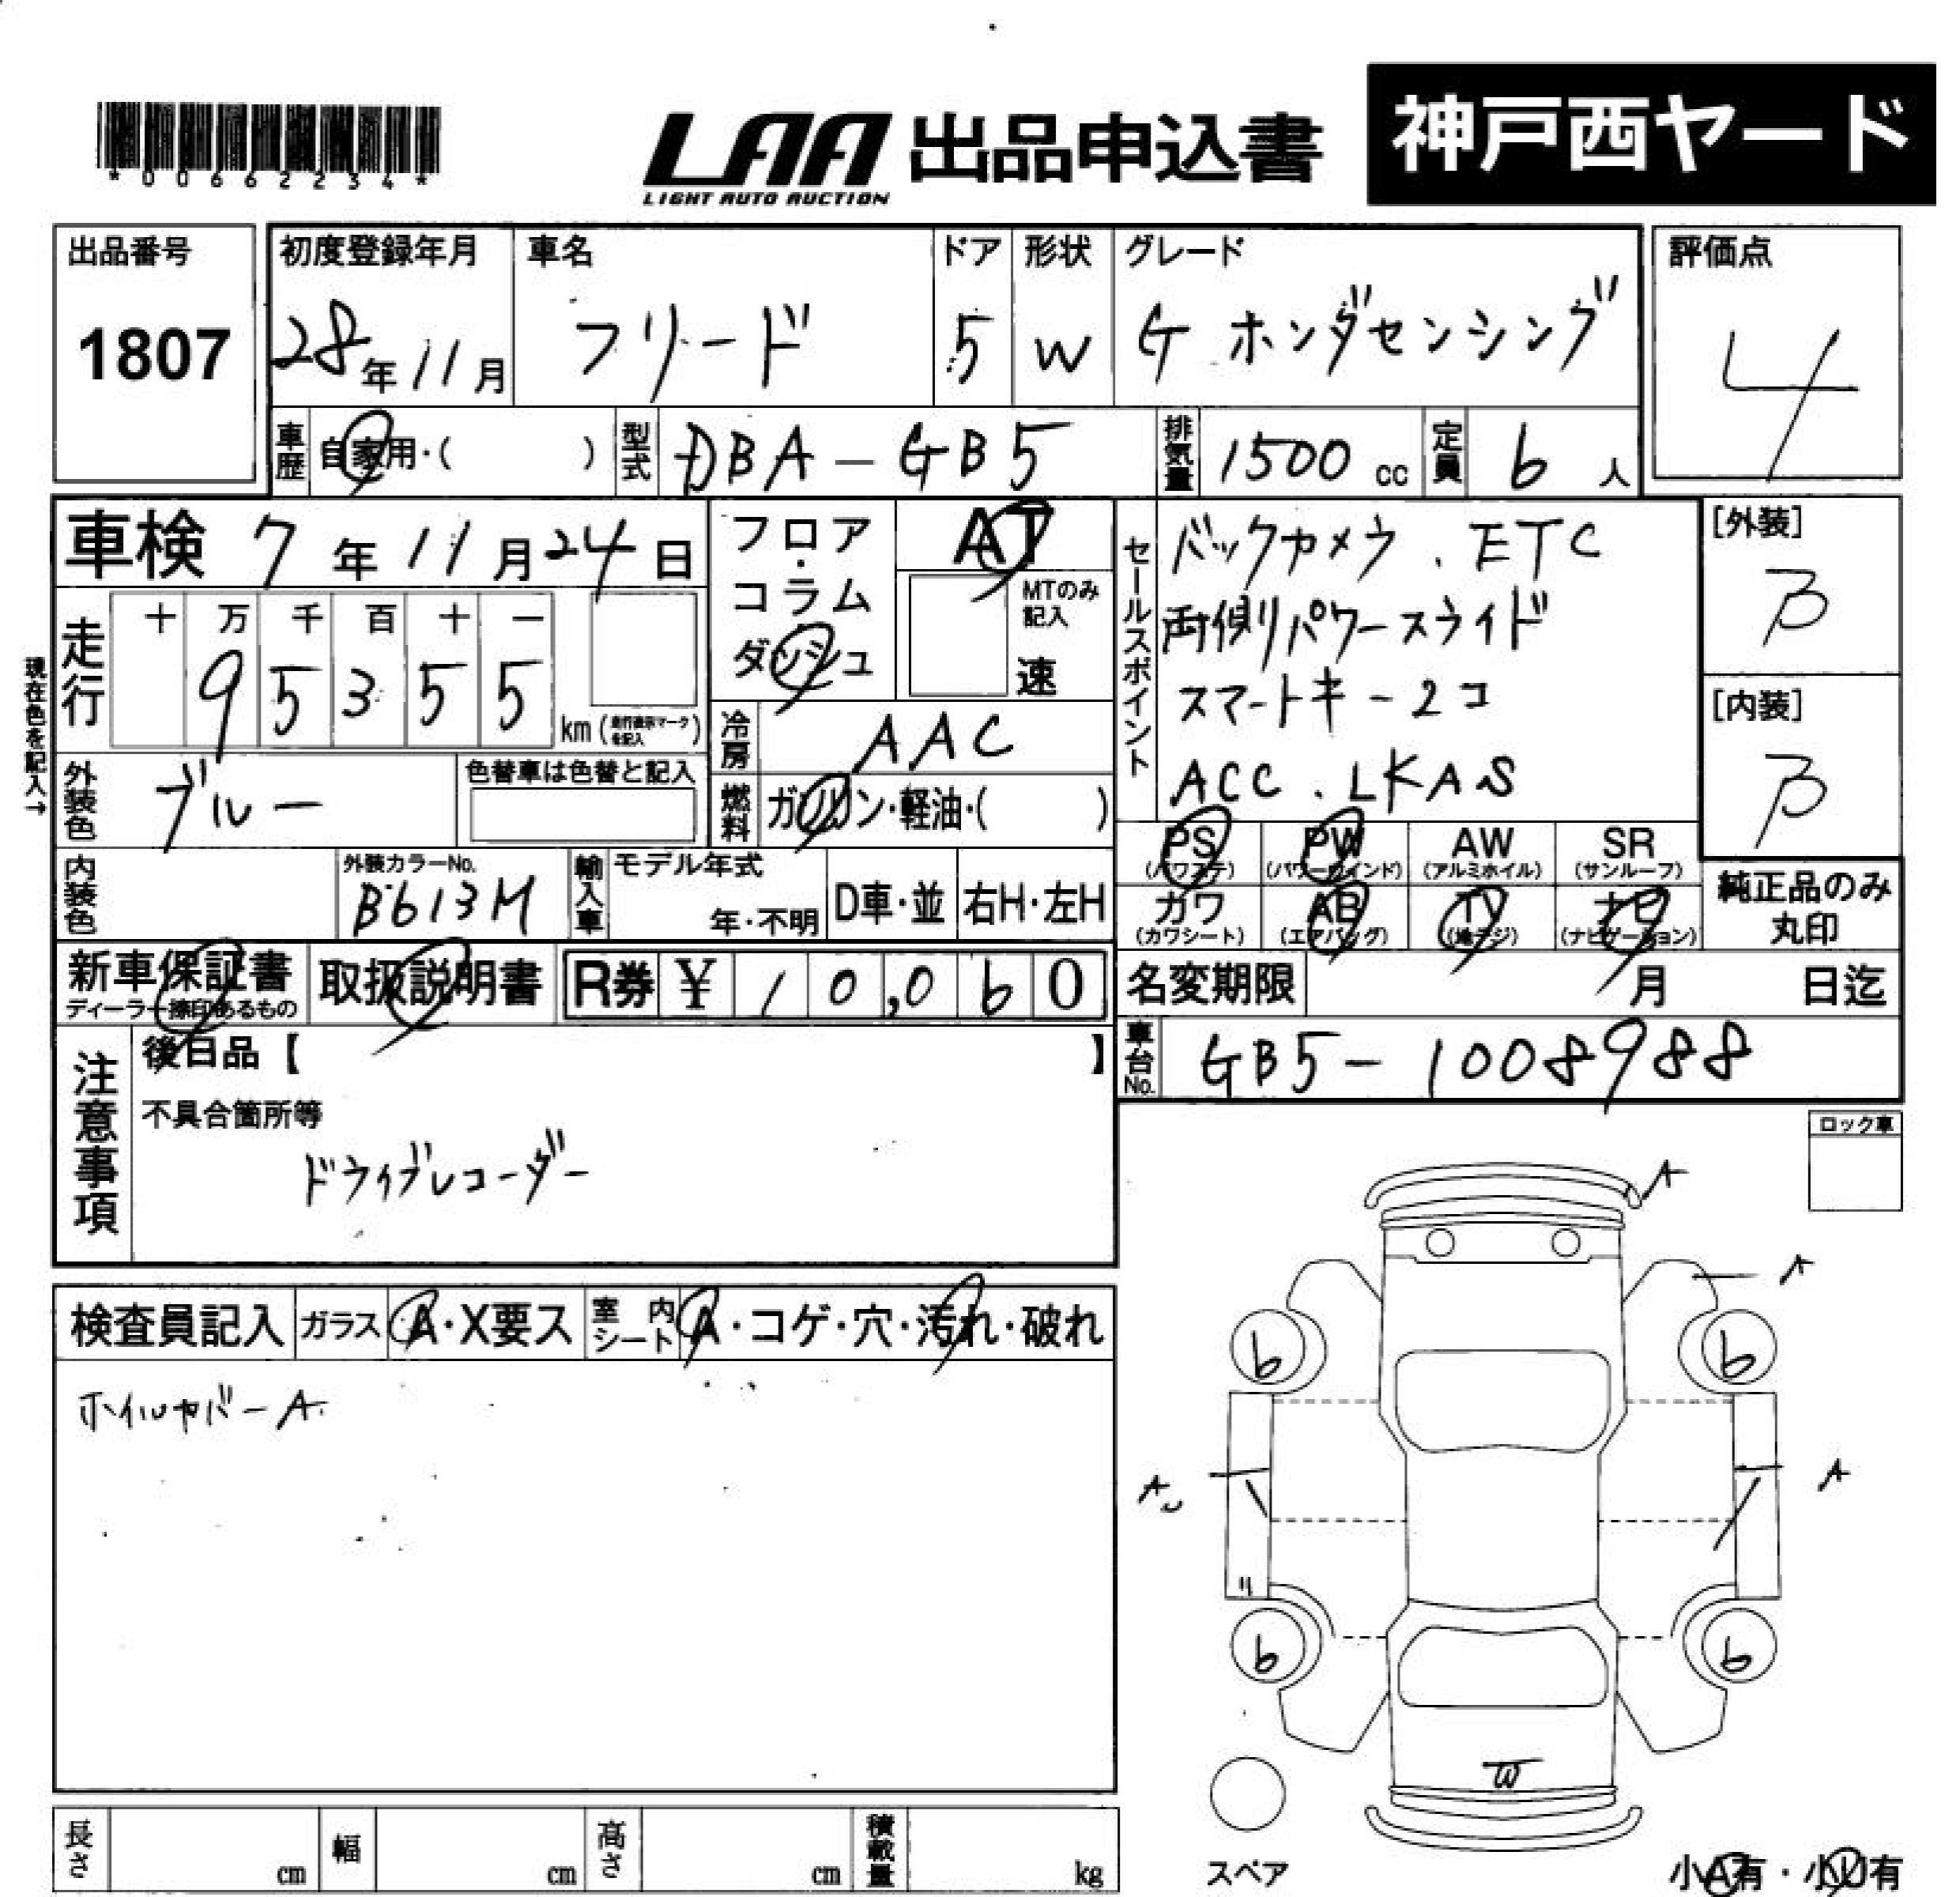 *00662234*
LAA 出品申込書 神戸西ヤード
LIGHT AUTO AUCTION
出品番号 初度登録年月 車名 ドア 形状 グレード 評価点
1807 28年11月 フリード 5 W G ホンダセンシング 4
車歴 自家用・( ) 型式 DBA-GB5 排気量 1500cc 定員 6人
車検 7年11月24日 フロア・コラム ダッシュ AT
MTのみ記入 速
セールスポイント
バックカメラ.ETC
両側パワースライド
スマートキー2コ
ACC.LKAS
[外装]
B
[内装]
B
現在色を記入→
走行 十 万 千 百 十 一
95355 km(走行表示マークを記入)
冷房 AAC
外装色 ブルー 色替車は色替と記入
燃料 ガソリン・軽油・( )
PS (パワステ) PW (パワーウインド) AW (アルミホイル) SR (サンルーフ)
カワ (カワシート) AB (エアバッグ) TV (地デジ) ナビ (ナビゲーション)
純正品のみ丸印
内装色 外装カラーNo. B613M 輸入車 モデル年式 年・不明 D車・並 右H・左H
新車保証書 ディーラー捺印あるもの 取扱説明書 R券 ¥10,060
名変期限 月 日迄
車台No. GB5-1008988
注意事項 後日品【 】
不具合箇所等
ドライブレコーダー
ロック車
検査員記入 ガラス A・X要ス 室内シート A・コゲ・穴・汚れ・破れ
ホイルカバーA
A
A
b b
A
A
b b
W
スペア
小A有・小U有
長さ cm 幅 cm 高さ cm 積載量 kg